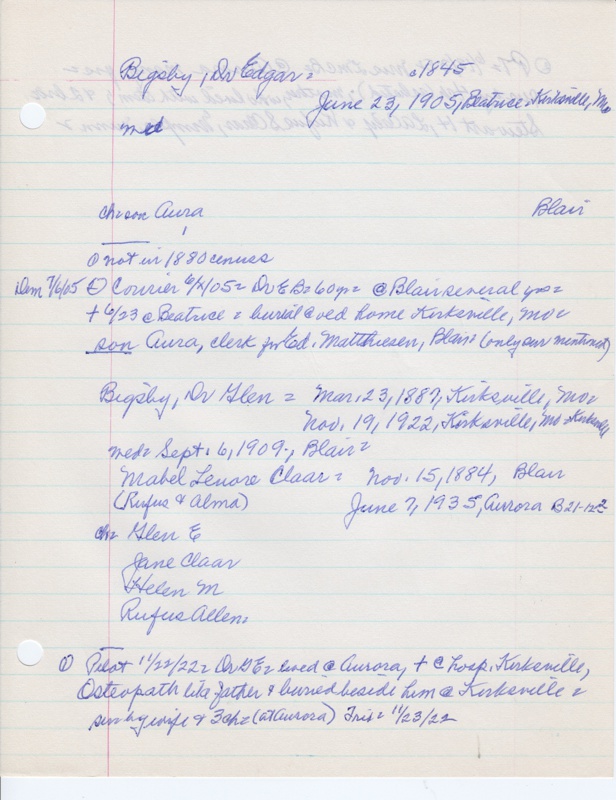 Bigsby, Dr Edgar = c1845
June 23, 1905, Beatrice = Kirksville, Mo
med
ch = son Aura Blair
① not in 1880 census
Dem 7/6/05 ① Courier 6/ /05 = Dr E B = 60 yr = @ Blair several yrs =
+ 6/23 @ Beatrice = burial @ old home Kirksville, Mo =
son Aura, clerk for Ed. Matthiesen, Blair = (only sur mentioned)
Bigsby, Dr Glen = Mar. 23, 1887, Kirksville, Mo =
Nov. 19, 1922, Kirksville, Mo = Kirksville
med = Sept. 6, 1909, Blair =
Mabel Lenore Claar = Nov. 15, 1884, Blair
(Rufus & Alma) June 7, 1935, Aurora B21-12-2
ch = Glen E
Jane Claar
Helen M
Rufus Allen =
① Pilot 11/22/22 = Dr G E = lived @ Aurora, + @ hosp. Kirksville,
Osteopath like father & buried beside him @ Kirksville =
sur by wife & 3 ch = (at Aurora) Trib = 11/23/22